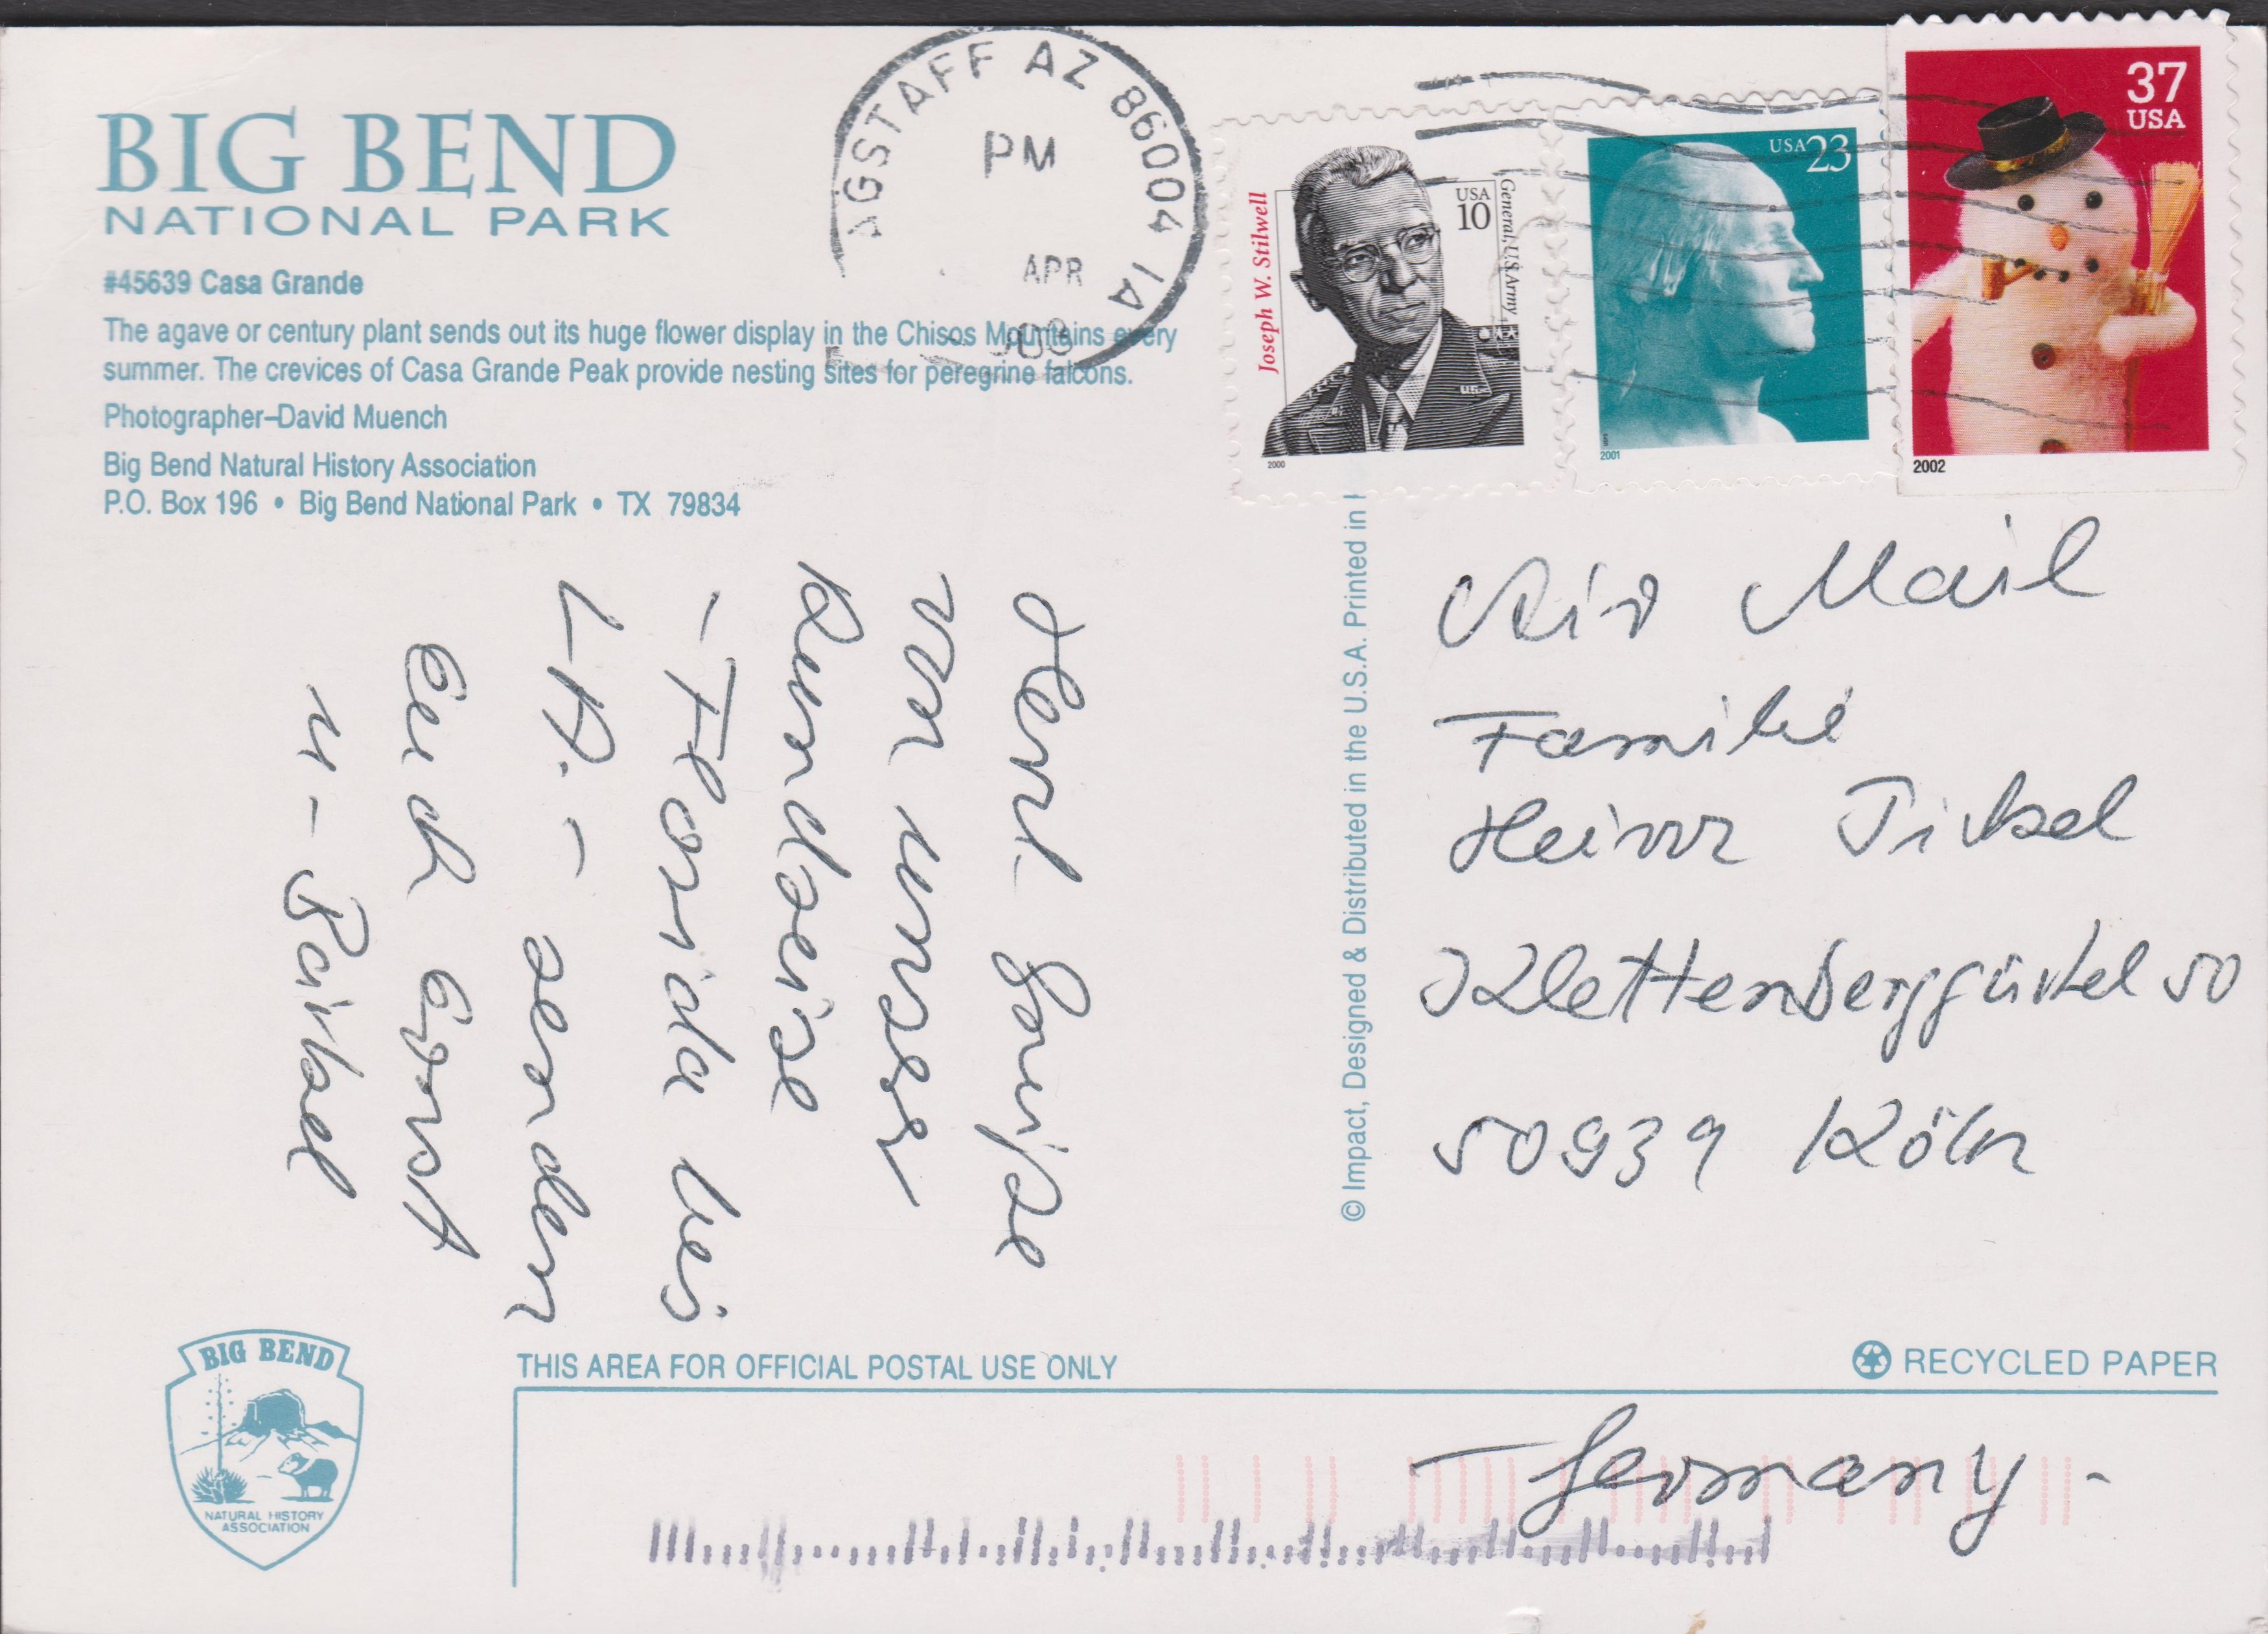 BIG BEND
NATIONAL PARK
#45639 Casa Grande
The agave or century plant sends out its huge flower display in the Chisos Mountains every
summer. The crevices of Casa Grande Peak provide nesting sites for peregrine falcons.
Photographer–David Muench
Big Bend Natural History Association
P.O. Box 196 • Big Bend National Park • TX 79834
AGSTAFF AZ 86004 1A
PM
APR
Joseph W. Stilwell
USA
10
General, U.S. Army
U.S.
2000
USA 23
2001
37
USA
2002
Herzl. Grüße
von unserer
Rundreise
- Florida bis
L.A. - senden
Euch Horst
u - Bärbel
© Impact, Designed & Distributed in the U.S.A. Printed in
Air Mail
Familie
Heinz
Klettenberggürtel 50
50939 Köln
THIS AREA FOR OFFICIAL POSTAL USE ONLY
RECYCLED PAPER
- Germany -
BIG BEND
NATURAL HISTORY
ASSOCIATION